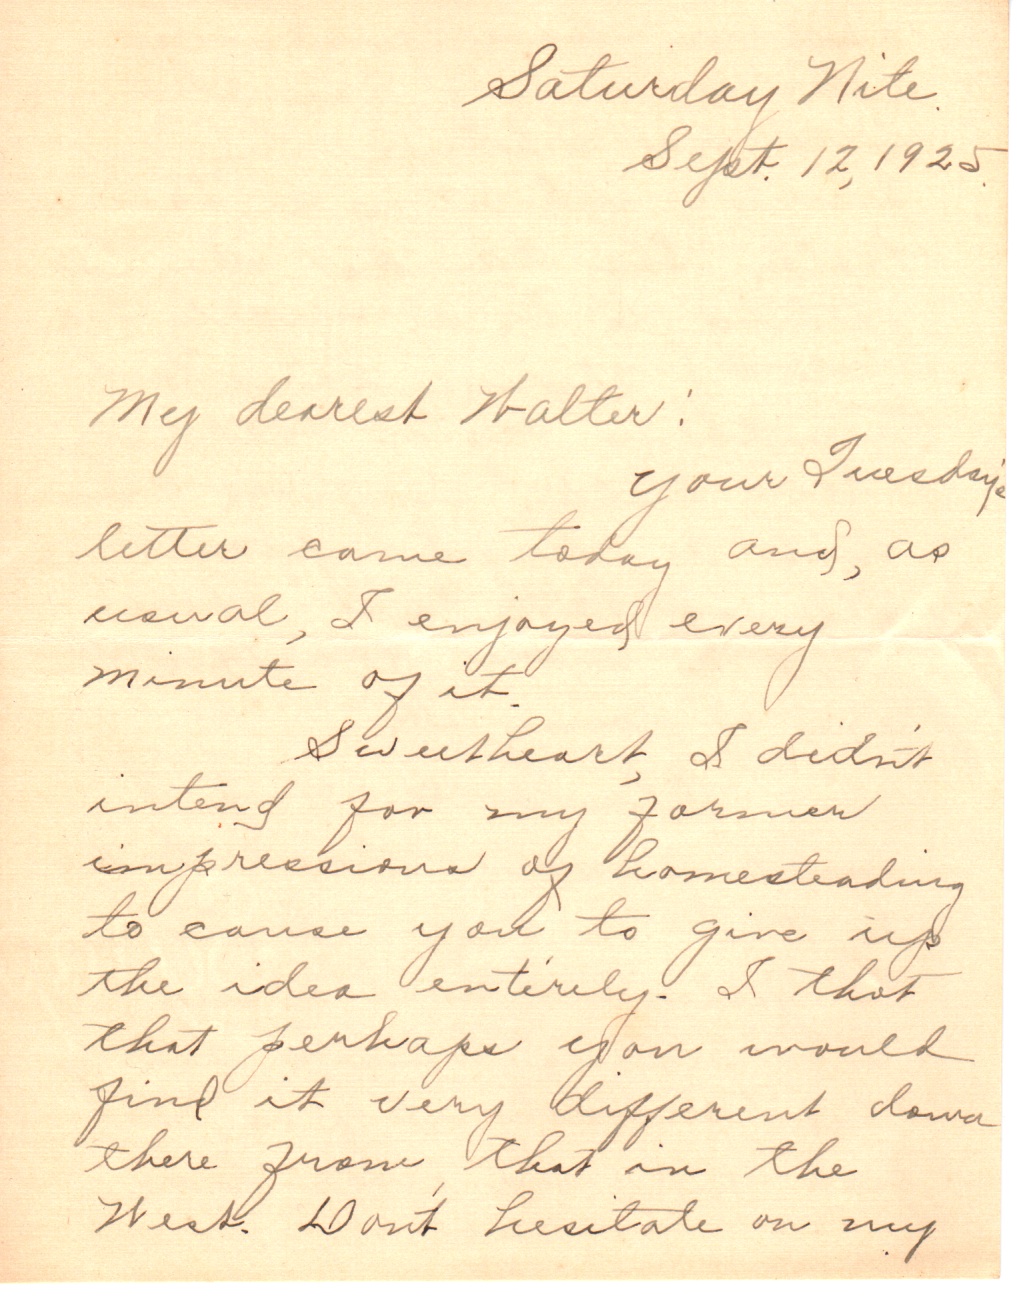 Saturday Nite.
Sept. 12, 1925.
My dearest Walter:
your Tuesday's
letter came today and, as
usual, I enjoyed every
minute of it.
Sweetheart, I didn't
intend for my former
impressions of homesteading
to cause you to give up
the idea entirely. I that
that perhaps you would
find it very different down
there from that in the
West. Don't hesitate on my